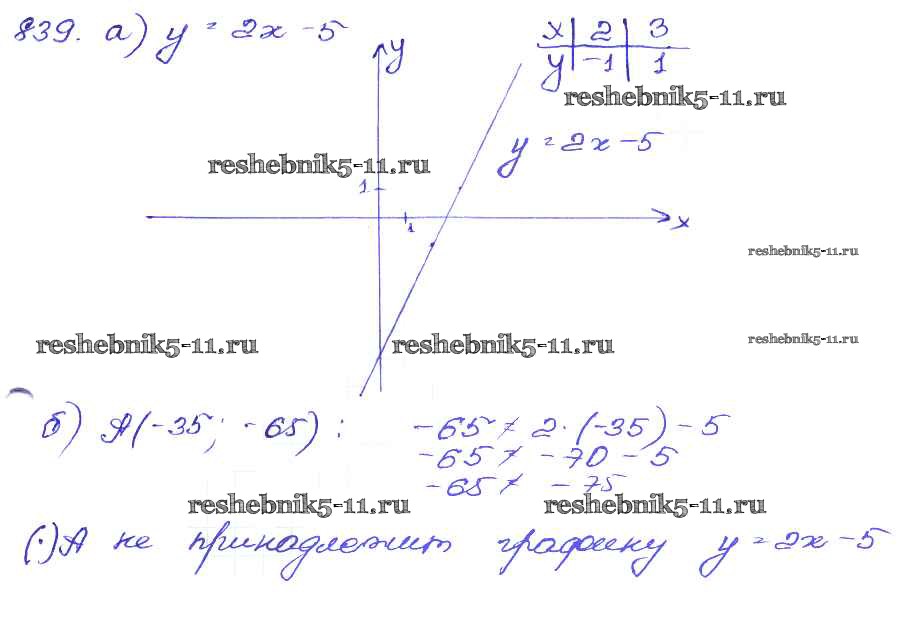 839. а) y = 2x - 5
x 2 3
y -1 1
reshebnik5-11.ru
y
y = 2x - 5
reshebnik5-11.ru
1
1
x
reshebnik5-11.ru
reshebnik5-11.ru
reshebnik5-11.ru
reshebnik5-11.ru
б) А(-35; -65): -65 ≠ 2·(-35) - 5
-65 ≠ -70 - 5
-65 ≠ -75
reshebnik5-11.ru
reshebnik5-11.ru
(·)А не принадлежит графику y = 2x - 5